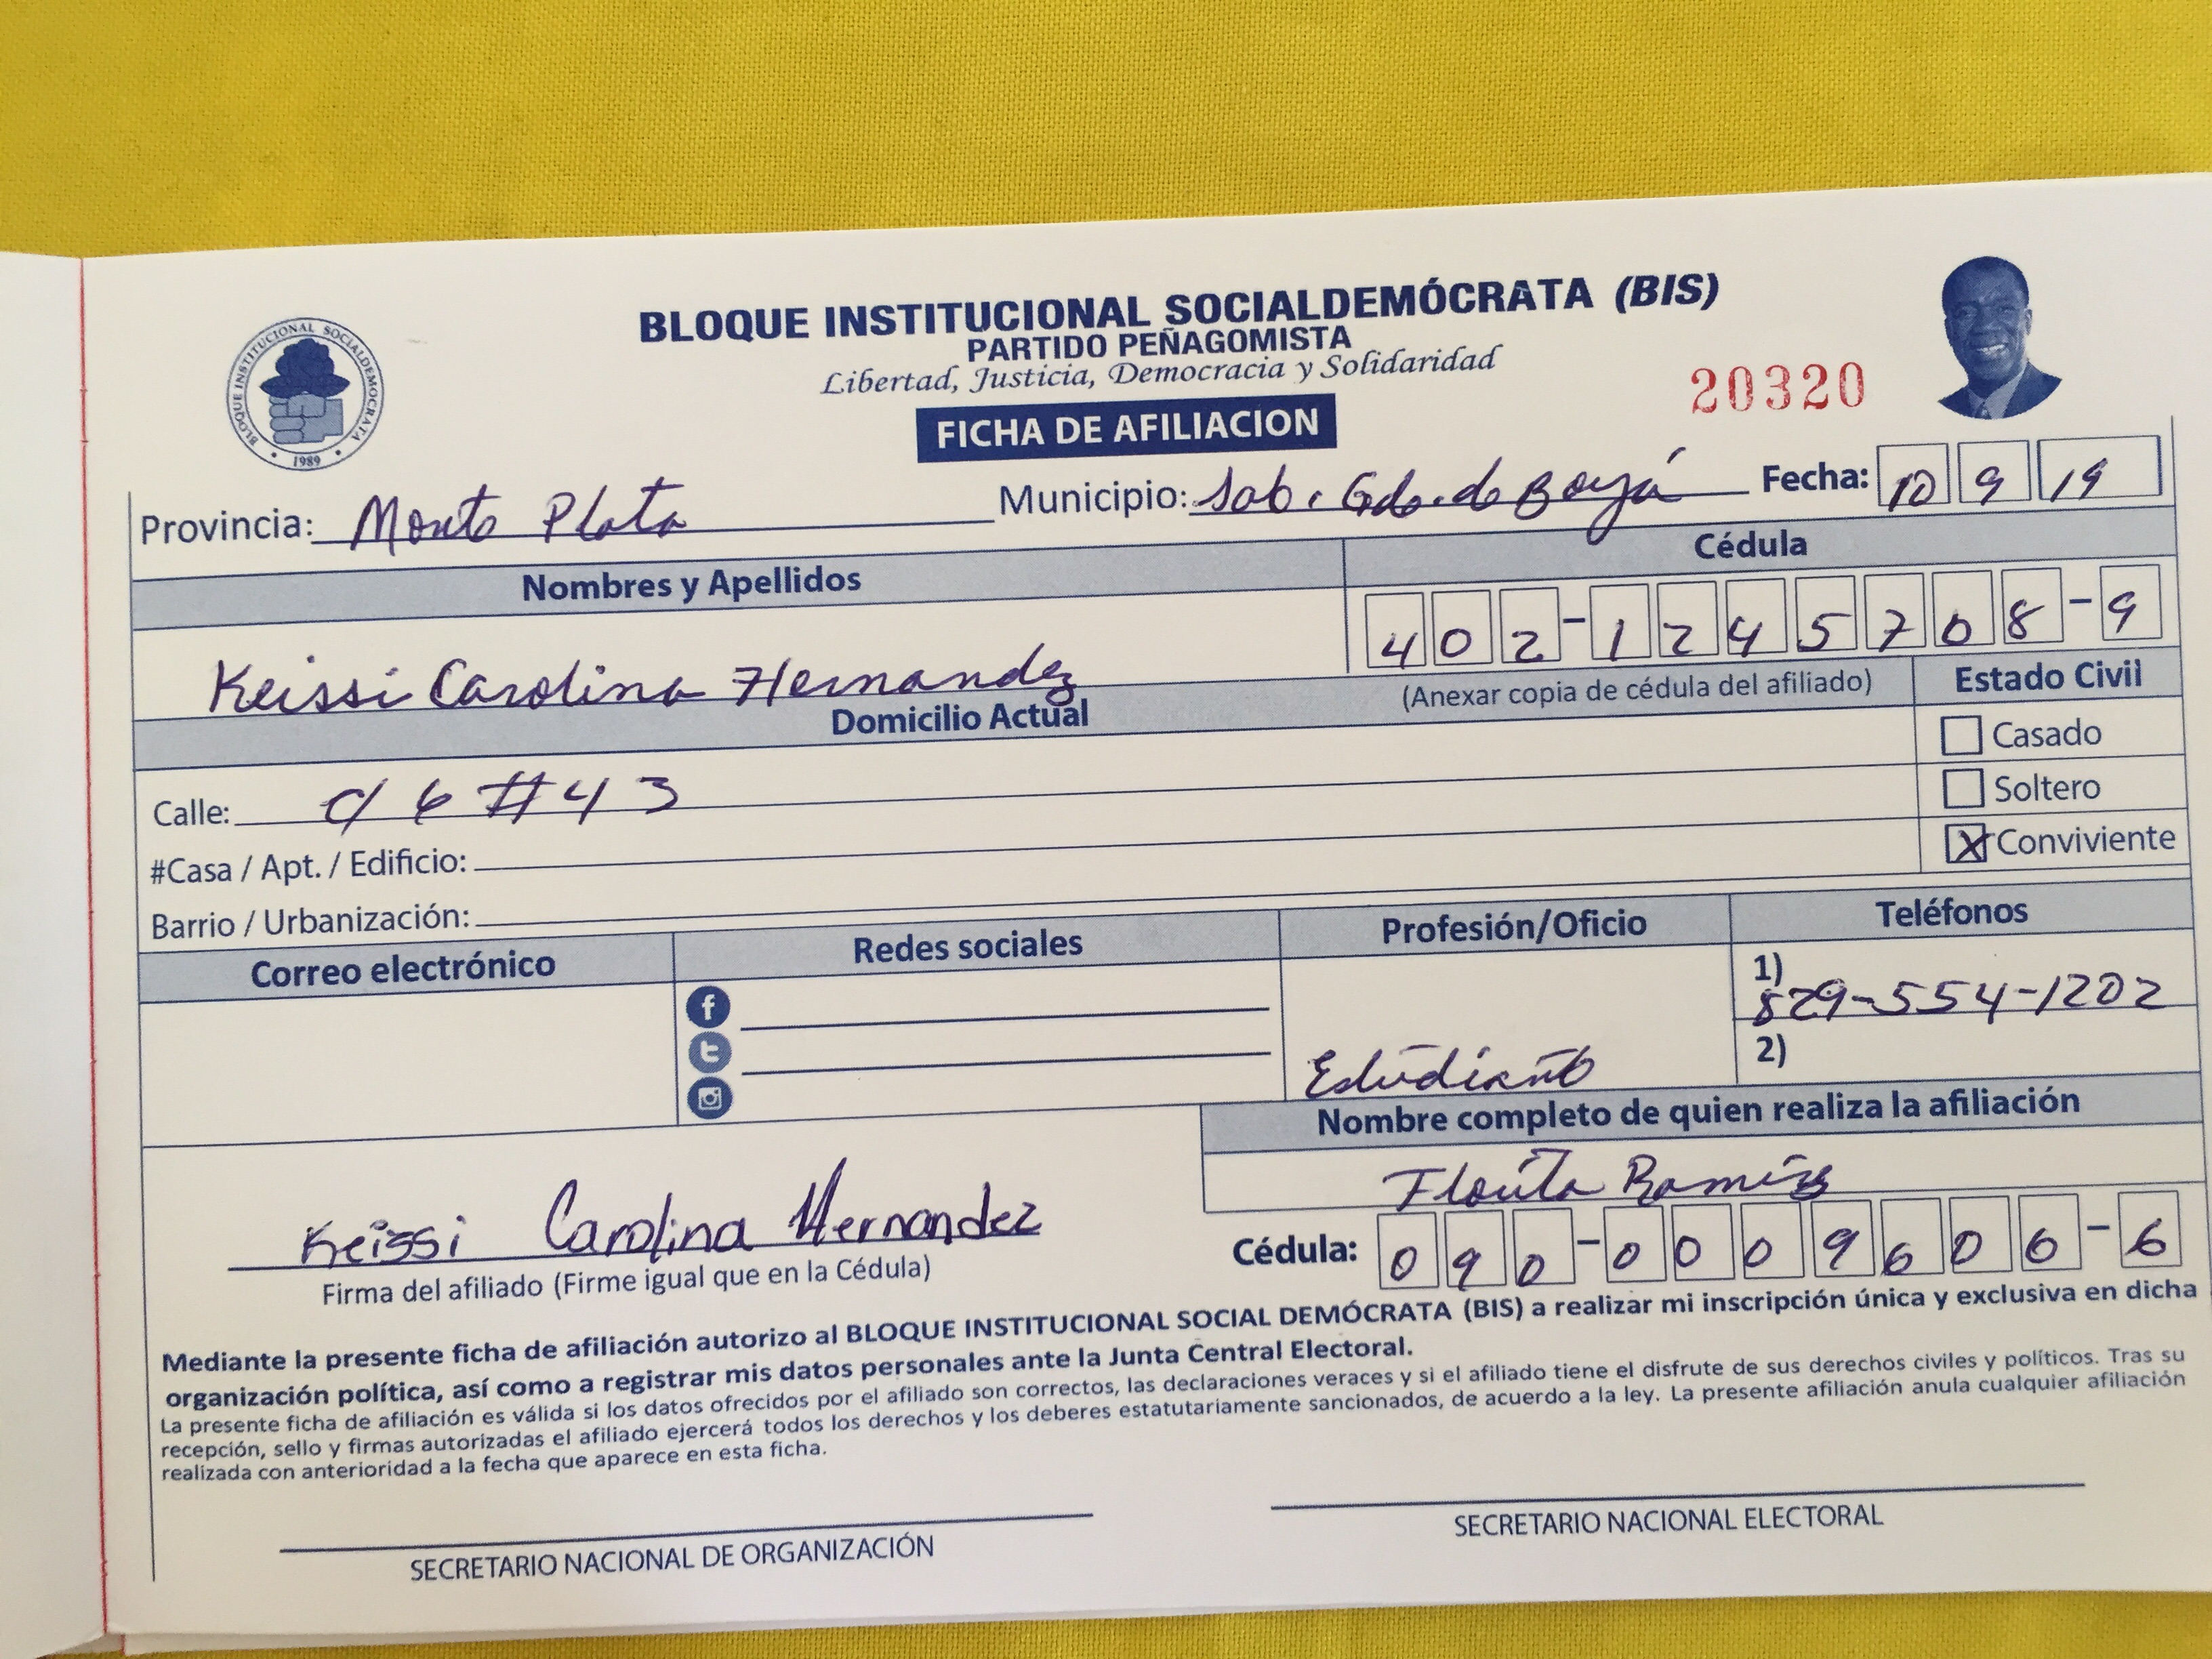 BLOQUE INSTITUCIONAL SOCIALDEMÓCRATA (BIS)
PARTIDO PEÑAGOMISTA
Libertad, Justicia, Democracia y Solidaridad
BLOQUE INSTITUCIONAL SOCIALDEMOCRATA
1989
20320
FICHA DE AFILIACION
Provincia: Monte Plata Municipio: Sab. Gde. de Boyá Fecha: 10 9 19
Nombres y Apellidos Cédula
Keissi Carolina Hernandez 402-1245708-9
(Anexar copia de cédula del afiliado) Estado Civil
Domicilio Actual
Casado
Calle: c/ 6 #43
Soltero
#Casa / Apt. / Edificio:
X Conviviente
Barrio / Urbanización:
Correo electrónico Redes sociales Profesión/Oficio Teléfonos
1) 829-554-1202
2)
Estudiante
Nombre completo de quien realiza la afiliación
Florita Ramirez
Keissi Carolina Hernandez
Cédula: 090-0009606-6
Firma del afiliado (Firme igual que en la Cédula)
Mediante la presente ficha de afiliación autorizo al BLOQUE INSTITUCIONAL SOCIAL DEMÓCRATA (BIS) a realizar mi inscripción única y exclusiva en dicha
organización política, así como a registrar mis datos personales ante la Junta Central Electoral.
La presente ficha de afiliación es válida si los datos ofrecidos por el afiliado son correctos, las declaraciones veraces y si el afiliado tiene el disfrute de sus derechos civiles y políticos. Tras su
recepción, sello y firmas autorizadas el afiliado ejercerá todos los derechos y los deberes estatutariamente sancionados, de acuerdo a la ley. La presente afiliación anula cualquier afiliación
realizada con anterioridad a la fecha que aparece en esta ficha.
SECRETARIO NACIONAL DE ORGANIZACIÓN
SECRETARIO NACIONAL ELECTORAL